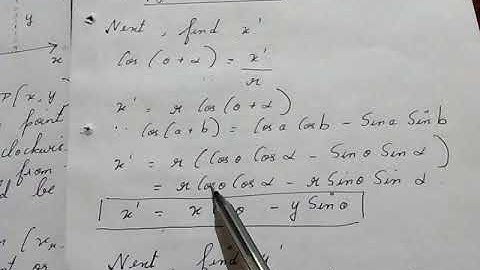 y
x
P(x, y
point
clockwis
from
be
Next, find x'
Cos (θ + α) = x'/r
x' = r Cos (θ + α)
∵ Cos (a + b) = Cos a Cos b - Sin a Sin b
x' = r (Cos θ Cos α - Sin θ Sin α)
= r Cos θ Cos α - r Sin θ Sin α
x' = x θ - y Sin θ
Next, find y'